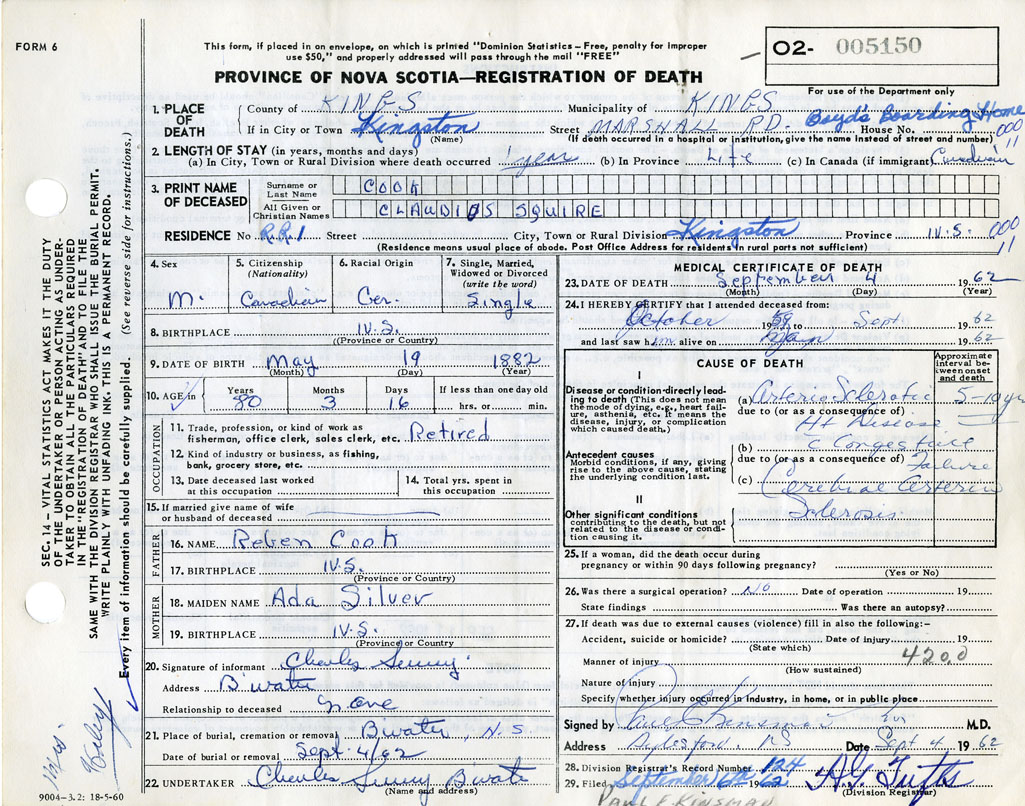 FORM 6
This form, if placed in an envelope, on which is printed "Dominion Statistics – Free, penalty for improper
use $50," and properly addressed will pass through the mail "FREE"
PROVINCE OF NOVA SCOTIA—REGISTRATION OF DEATH
O2- 005150
For use of the Department only
1. PLACE OF DEATH
County of KINGS Municipality of KINGS
If in City or Town Kingston Street MARSHALL RD. House No. Boyd's Boarding Home
(Name) (If death occurred in a hospital or institution, give the name instead of street and number)
000
11
2. LENGTH OF STAY (in years, months and days)
(a) In City, Town or Rural Division where death occurred 1 year (b) In Province Life (c) In Canada (if immigrant) Canadian
3. PRINT NAME OF DECEASED
Surname or Last Name COOK
All Given or Christian Names CLAUDIOS SQUIRE
RESIDENCE No. R.R.1 Street City, Town or Rural Division Kingston Province N.S.
000
11
(Residence means usual place of abode. Post Office Address for residents in rural parts not sufficient)
4. Sex
M.
5. Citizenship
(Nationality)
Canadian
6. Racial Origin
Ger.
7. Single, Married, Widowed or Divorced
(write the word)
Single
8. BIRTHPLACE N.S.
(Province or Country)
9. DATE OF BIRTH May 19 1882
(Month) (Day) (Year)
10. AGE in Years Months Days If less than one day old
80 3 16 hrs. or min.
OCCUPATION
11. Trade, profession, or kind of work as
fisherman, office clerk, sales clerk, etc. Retired
12. Kind of industry or business, as fishing,
bank, grocery store, etc.
13. Date deceased last worked
at this occupation
14. Total yrs. spent in
this occupation
15. If married give name of wife
or husband of deceased
FATHER
16. NAME Reben Cook
17. BIRTHPLACE N.S.
(Province or Country)
MOTHER
18. MAIDEN NAME Ada Silver
19. BIRTHPLACE N.S.
(Province or Country
20. Signature of informant Charles
Address B'water
Relationship to deceased None
21. Place of burial, cremation or removal B'water, N.S
Date of burial or removal Sept 4/62
22. UNDERTAKER Charles B'water
(Name and address)
9004-3.2: 18-5-60
MEDICAL CERTIFICATE OF DEATH
23. DATE OF DEATH September 4 1962
(Month) (Day) (Year)
24. I HEREBY CERTIFY that I attended deceased from:
October 1959 to Sept. 1962
and last saw him alive on May 1962
CAUSE OF DEATH
Approximate interval between onset and death
I
Disease or condition directly leading
to death (This does not mean
the mode of dying, e.g., heart failure,
asthenia, etc. It means the
disease, injury, or complication
which caused death.)
(a) Arterio Sclerotic 5-10 yrs
due to (or as a consequence of)
Ht Disease
Antecedent causes
Morbid conditions, if any, giving
rise to the above cause, stating
the underlying condition last.
(b) c Congestive
due to (or as a consequence of) Failure
(c) Cerebral Arterio
Sclerosis
II
Other significant conditions
contributing to the death, but not
related to the disease or condition
causing it.
25. If a woman, did the death occur during
pregnancy or within 90 days following pregnancy?
(Yes or No)
26. Was there a surgical operation? No Date of operation 19
State findings Was there an autopsy?
27. If death was due to external causes (violence) fill in also the following:–
Accident, suicide or homicide? Date of injury 19
(State which)
4200
Manner of injury
(How sustained)
Nature of injury
Specify whether injury occurred in industry, in home, or in public place
Signed by Paul E Kinsman M.D.
Address Aylesford NS Date Sept 4 1962
28. Division Registrar's Record Number 124
29. Filed September 6th 1962 H.G. Tufts
(Division Registrar)
PAUL E KINSMAN
SEC. 14 – VITAL STATISTICS ACT MAKES IT THE DUTY
OF THE UNDERTAKER OR PERSON ACTING AS UNDERTAKER
TO OBTAIN ALL THE PARTICULARS REQUIRED
IN THE "REGISTRATION OF DEATH" AND TO FILE THE
SAME WITH THE DIVISION REGISTRAR WHO SHALL ISSUE THE BURIAL PERMIT.
WRITE PLAINLY WITH UNFADING INK. THIS IS A PERMANENT RECORD.
Every item of information should be carefully supplied. (See reverse side for instructions.)